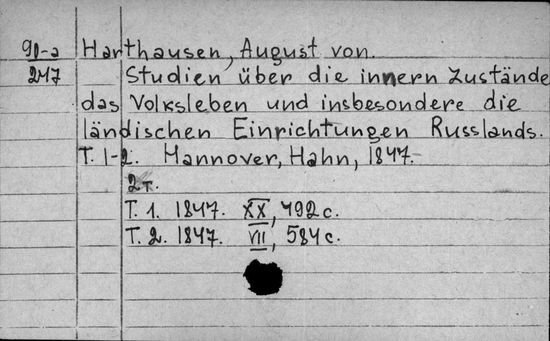 90-a Harthausen, August von.
247 Studien über die innern Zustände
das Volksleben und insbesondere die
ländischen Einrichtungen Russlands.
T. 1-2. Mannover, Hahn, 1847.
2 т.
T. 1. 1847. XX, 492 c.
T. 2. 1847. VII, 584 c.